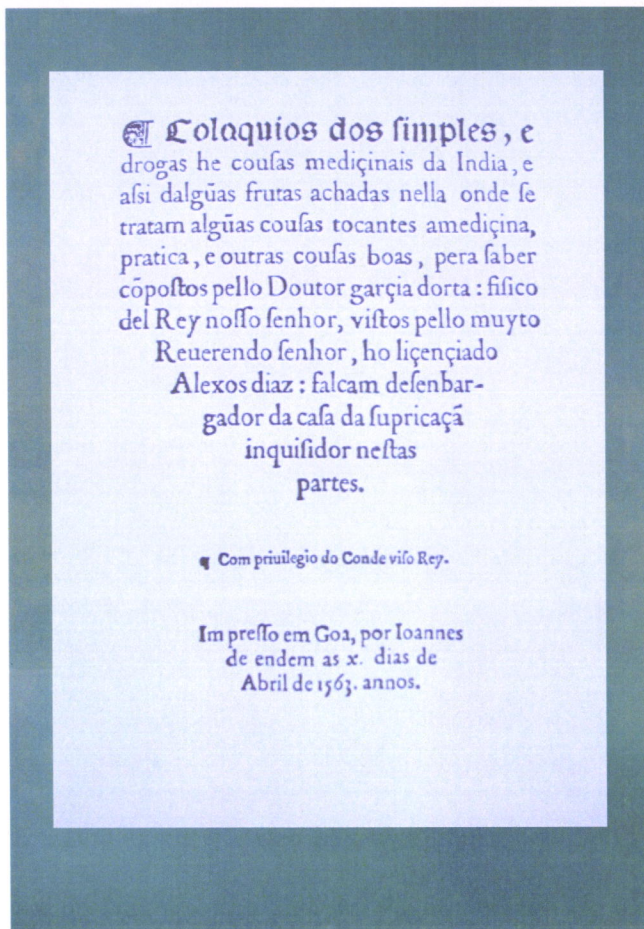 ¶ Coloquios dos ſimples, e
drogas he couſas mediçinais da India, e
aſsi dalgũas frutas achadas nella onde ſe
tratam algũas couſas tocantes amediçina,
pratica, e outras couſas boas, pera ſaber
cõpoſtos pello Doutor garçia dorta : fiſico
del Rey noſſo ſenhor, viſtos pello muyto
Reuerendo ſenhor, ho liçençiado
Alexos diaz : falcam deſenbar-
gador da caſa da ſupricaçã
inquiſidor neſtas
partes.
¶ Com priuilegio do Conde viſo Rey.
Im preſſo em Goa, por Ioannes
de endem as x. dias de
Abril de 1563. annos.